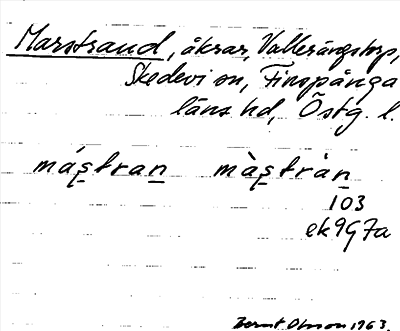 Marstrand, åkrar, Vallerängstorp,
Skedevi sn, Finspånga
läns hd, Östg. l.
má̱stran̲ mà̱stràn̲
103
ek 9G7a
Bernt Olsson 1963.